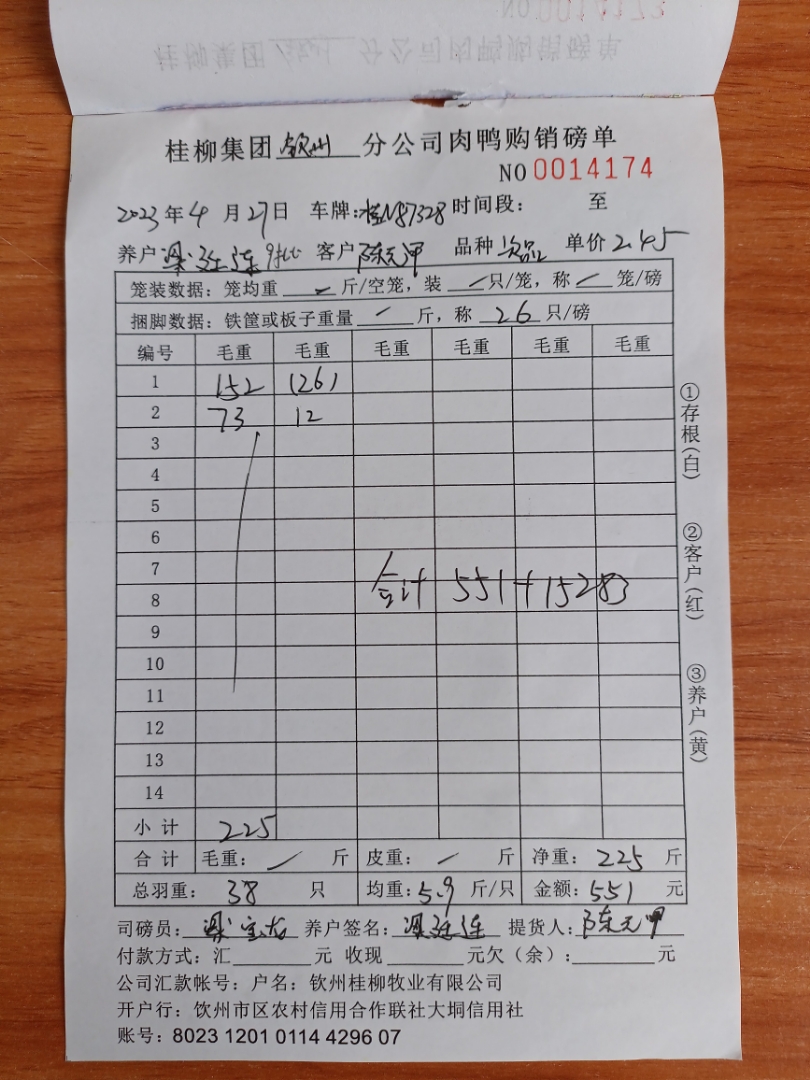 桂柳集团 钦州 分公司肉鸭购销磅单
NO 0014174
2023年4月27日 车牌:桂N87328 时间段: 至
养户 梁 连 9批 客户 陈元甲 品种 次品 单价 2.45
笼装数据:笼均重 / 斤/空笼,装 / 只/笼,称 / 笼/磅
捆脚数据:铁筐或板子重量 / 斤,称 26 只/磅
编号 毛重 毛重 毛重 毛重 毛重 毛重
1 152 (26)
2 73 12
3
4
5
6
7
8
合计 551+15283
9
10
11
12
13
14
小计 225
合计 毛重: / 斤 皮重: / 斤 净重: 225 斤
总羽重: 38 只 均重: 5.9 斤/只 金额: 551 元
司磅员: 梁 养户签名: 连 提货人: 陈元甲
付款方式:汇 元 收现 元欠(余): 元
公司汇款帐号:户名:钦州桂柳牧业有限公司
开户行:饮州市区农村信用合作联社大垌信用社
账号:8023 1201 0114 4296 07
①存根(白)
②客户(红)
③养户(黄)